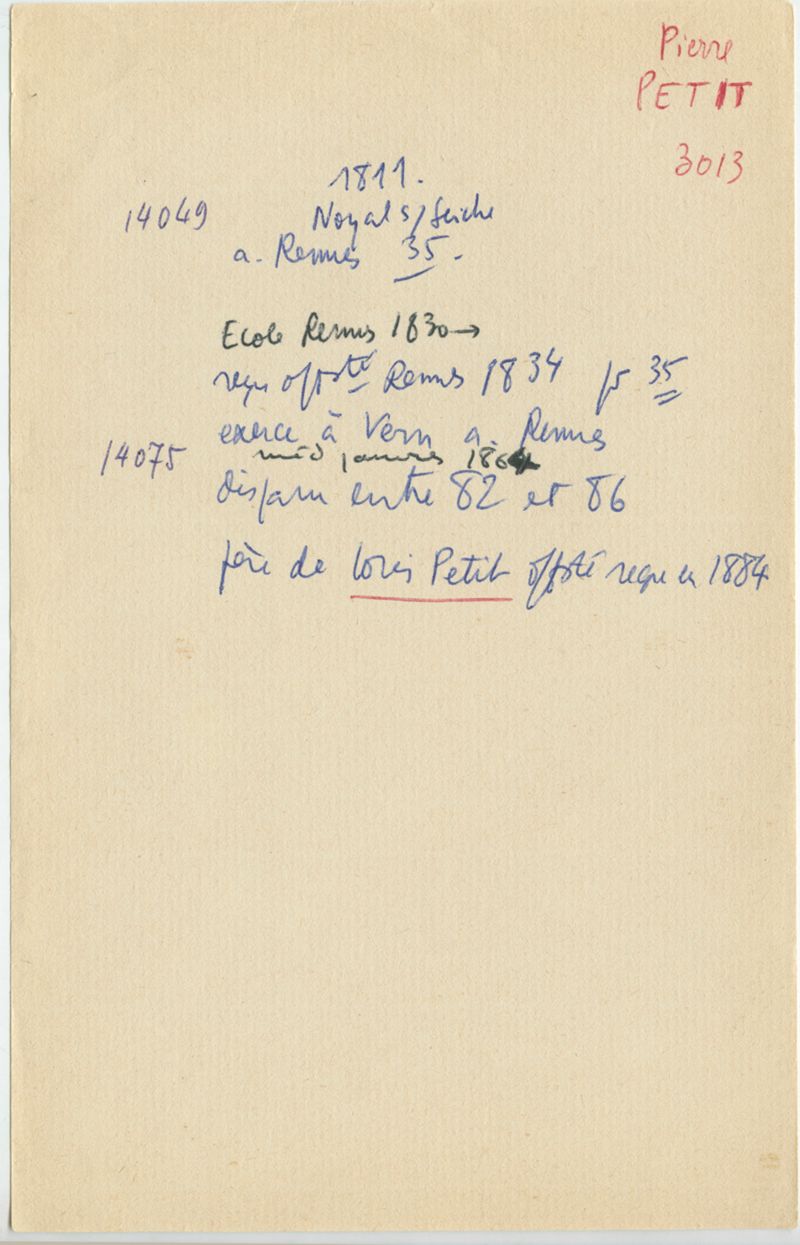 Pierre
PETIT
3013
1811.
14049 Noyal s/Seiche
a. Rennes 35.
Ecole Rennes 1830→
reçu offsté Rennes 1834 pr 35
exerce à Vern a. Rennes
14075 méd 1864
disparu entre 82 et 86
père de Louis Petit offsté reçu en 1884